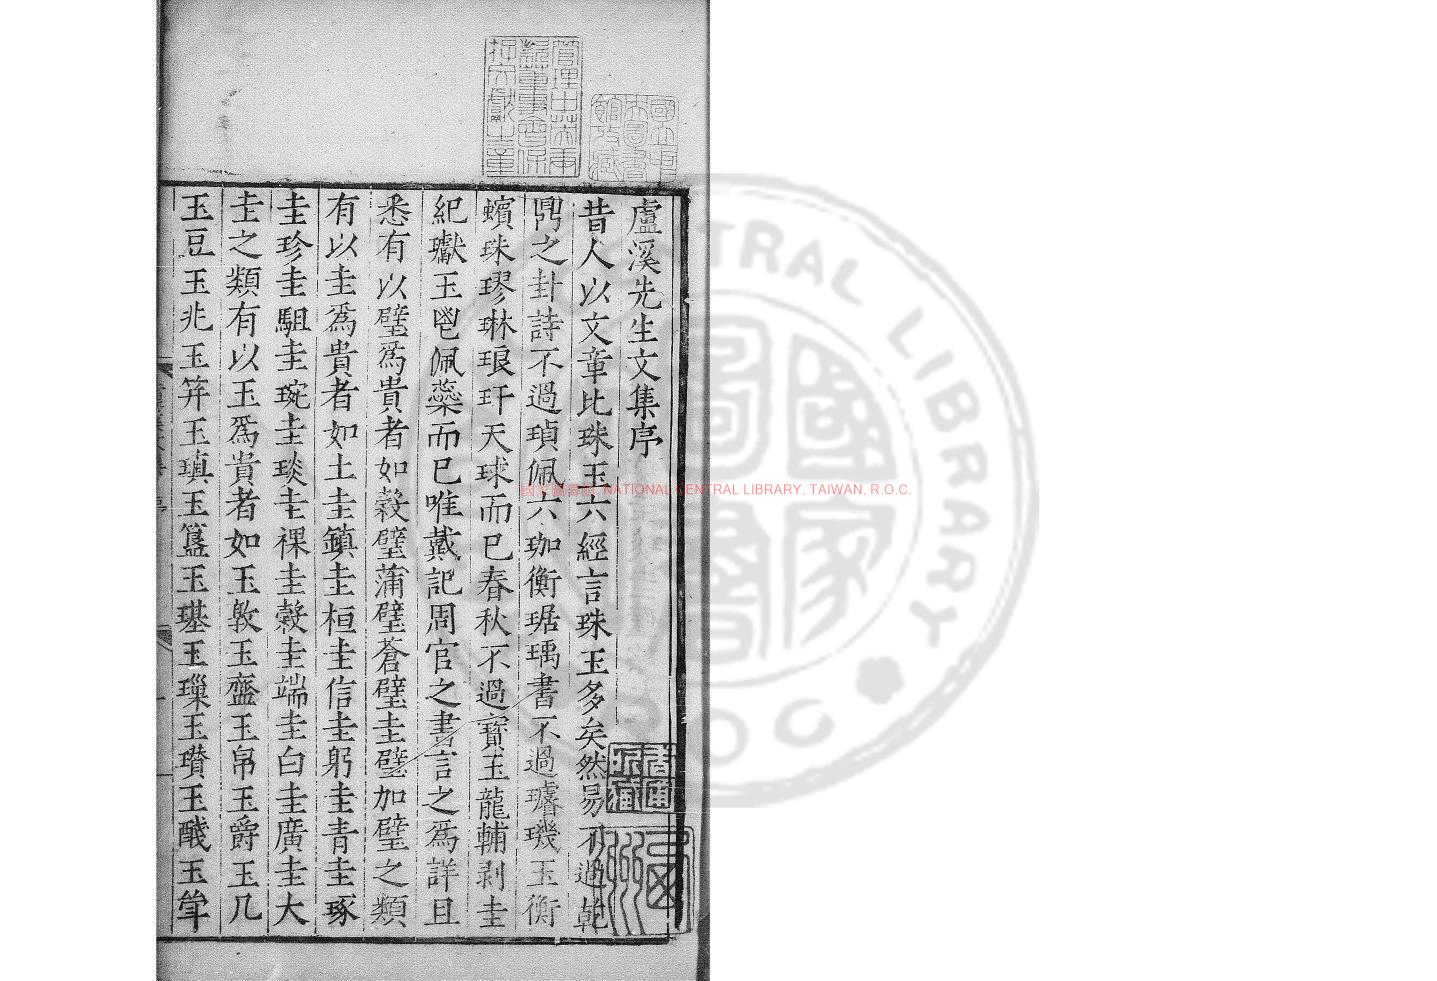 盧溪先生文集序
昔人以文章比珠玉六經言珠玉多矣然易不過乾
鼎之卦詩不過瑱佩六珈衡琚瑀書不過璿璣玉衡
蠙珠璆琳琅玕天球而已春秋不過寶玉龍輔剥圭
紀瓛玉鬯佩蘂而已唯戴記周官之書言之爲詳且
悉有以璧爲貴者如穀璧蒲璧蒼璧圭璧加璧之類
有以圭爲貴者如土圭鎮圭桓圭信圭躬圭青圭琢
圭珍圭駔圭琬圭琰圭祼圭穀圭端圭白圭廣圭大
圭之類有以玉爲貴者如玉敦玉齍玉帛玉爵玉几
玉豆玉兆玉笄玉瑱玉簋玉璂玉璅玉瓚玉醆玉
國家圖書館 NATIONAL CENTRAL LIBRARY, TAIWAN, R.O.C.
管理中英庚款董事會保存文獻之章
國立中央圖書館收藏